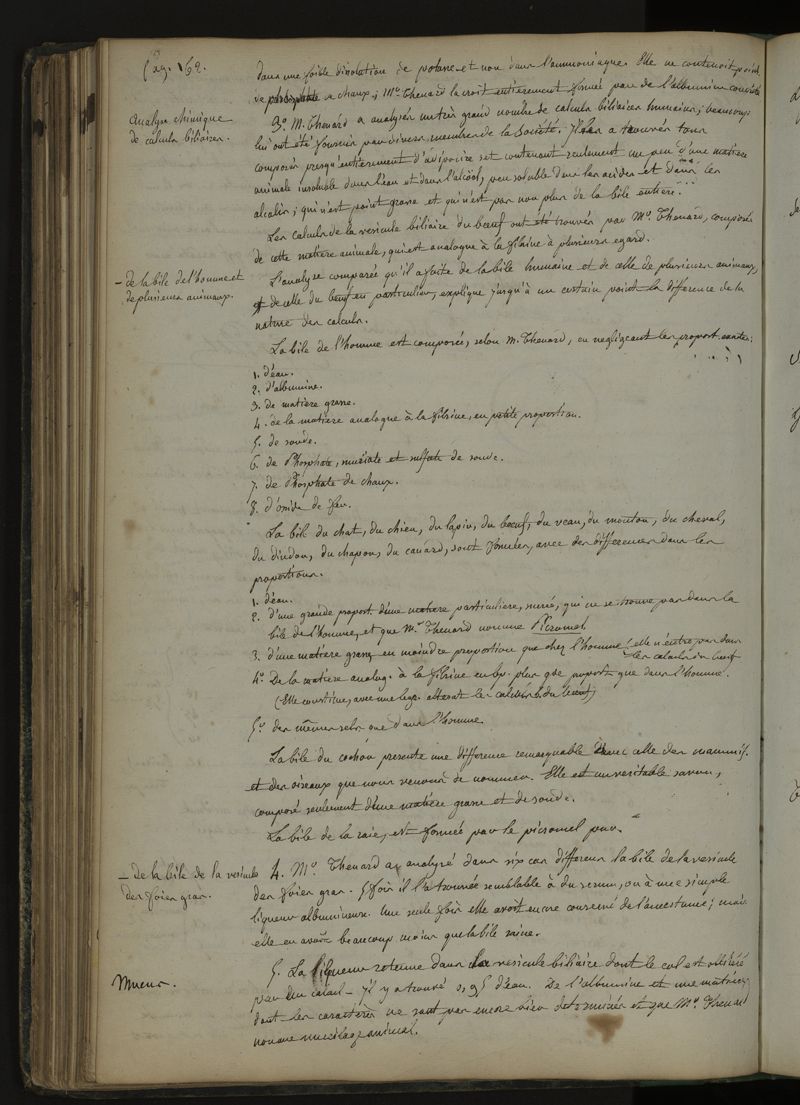 Pag. 162.
dans une foible dissolution de potasse et non dans l'ammoniaque. Elle ne contenoit point
de phosphate de chaux; Mr. Thenard la croit entièrement formée par de l'albumine concrète
Analyse chimique
de calculs biliaires.
3o. M. Thenard a analysés un très grand nombre de calculs biliaires humains; beaucoup
lui ont été fournis par divers membres de la Société. Il les a trouvés tous
composés presqu'entièrement d'adipocire et contenant seulement un peu d'une matière
animale insoluble dans l'eau et dans l'alcool, peu soluble dans les acides et dans les
alcalis; qui n'est point grasse et qui n'est pas non plus de la bile entière.
Les calculs de la vesicule biliaire du bœuf ont été trouvés par Mr. Thenard, composés
de cette matière animale, qui est analogue à la fibrine à plusieurs egard.
– de la bile de l'homme et
de plusieurs animaux.
L'analyse comparée qu'il a faite de la bile humaine et de celle de plusieurs animaux,
et de celle du bœuf en particulier, explique jusqu'à un certain point la difference de la
nature des calculs.
La bile de l'homme est composée, selon M. Thenard, en negligeant les proport. exactes:
1. d'eau.
2. d'albumine.
3. de matiere grasse.
4. de la matiere analogue à la fibrine, en petite proportion.
5. de soude.
6. de Phosphate, muriate et sulfate de soude.
7. de Phosphate de chaux.
8. d'oxide de fer.
La bile du chat, du chien, du lapin, du bœuf, du veau, du mouton, du cheval,
du dindon, du chapon, du canard, sont formées, avec des differences dans les
proportions.
1. d'eau.
2. d'une grande proport. d'une matiere particuliere, sucrée, qui ne se trouve pas dans la
bile de l'homme, et que Mr. Thenard nomme Picromel
3. d'une matiere grasse, en moindre proportion que chez l'homme (elle n'entre pas dans
les calculs du bœuf
4o. De la matiere analog. à la fibrine en bp. plus gde proport. que dans l'homme.
(Elle constitue, avec une leg. alterat. les calculs b. du bœuf)
5o. des mêmes sels que dans l'homme.
La bile du cochon presente une difference remarquable avec celle des mammif.
et des oiseaux que nous venons de nommer. Elle est un veritable savon,
composé seulement d'une matière grasse et de soude.
La bile de la raie, est formée par le picromel pur.
– De la bile de la vesicule
des foies gras.
4. Mr. Thenard a analysé dans six cas differens la bile de la vesicule
des foies gras. 5 fois il l'a trouvée semblable à du serum, ou à une simple
liqueur albumineuse. Une seule fois elle avoit encore conservé de l'amertume; mais
elle en avoit beaucoup moins que la bile saine.
Mucus.
5. La liqueur retenue dans la vesicule biliaire dont le col est obstrué
par un calcul – Il y a trouvé 0,95 d'eau. De l'albumine et une matière
dont les caractères ne sont pas encore bien determinés et que Mr. Thenard
nomme mucilage animal.